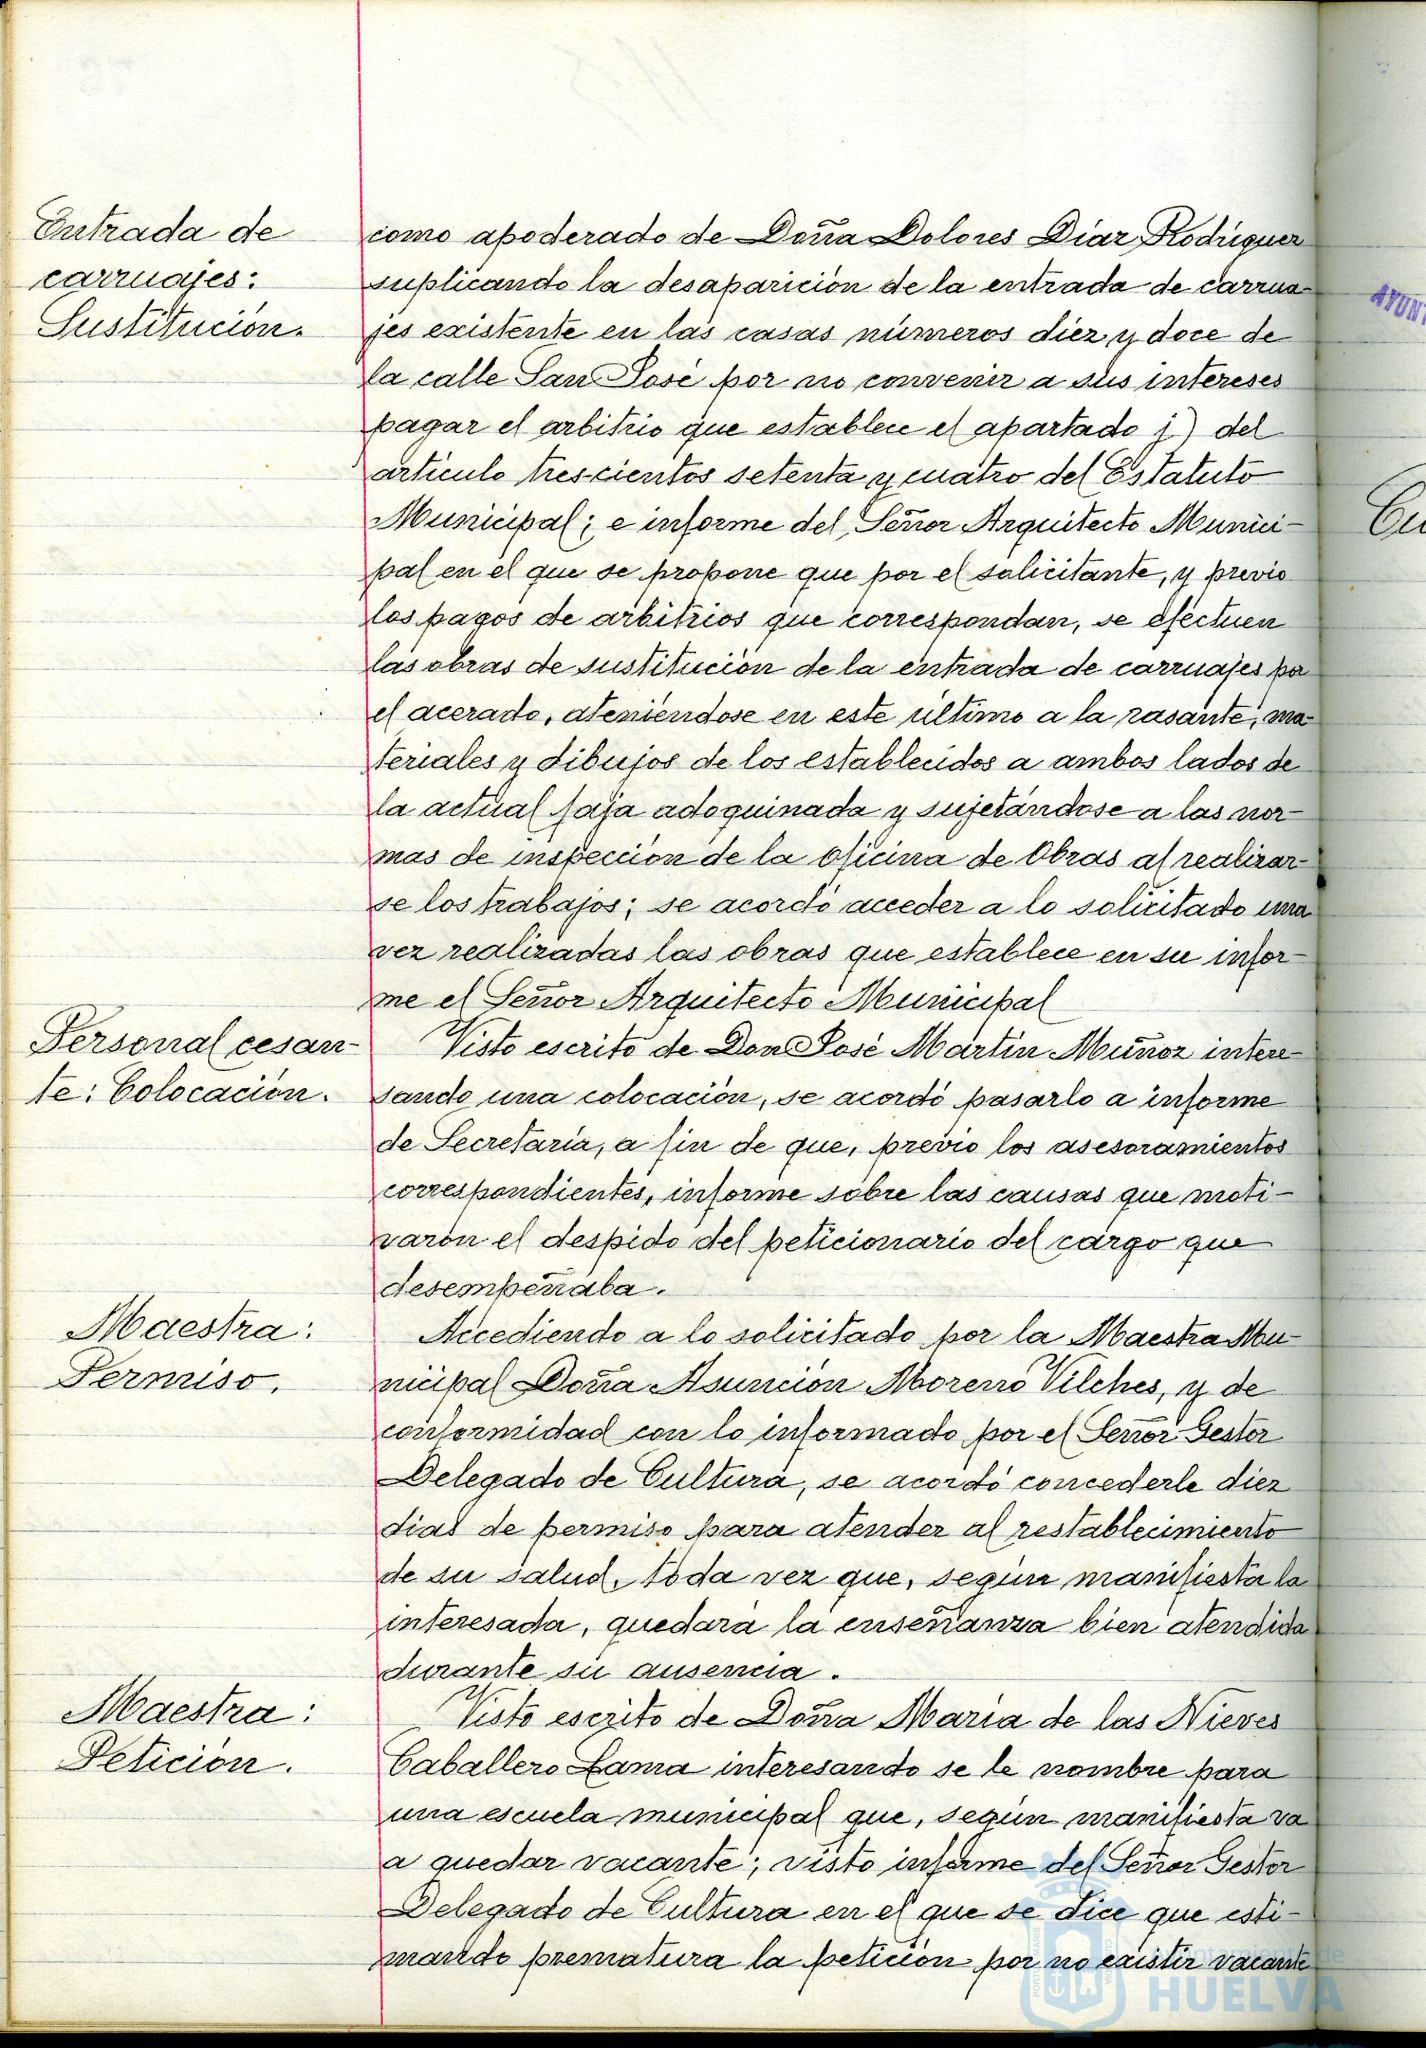 Entrada de
carruajes:
Sustitución.
como apoderado de Doña Dolores Díaz Rodríguez
suplicando la desaparición de la entrada de carrua-
jes existente en las casas números diez y doce de
la calle San José por no convenir a sus intereses
pagar el arbitrio que establece el apartado j) del
artículo trescientos setenta y cuatro del Estatuto
Municipal; e informe del Señor Arquitecto Munici-
pal en el que se propone que por el solicitante, y previo
los pagos de arbitrios que correspondan, se efectuen
las obras de sustitución de la entrada de carruajes por
el acerado, ateniéndose en este último a la rasante, ma-
teriales y dibujos de los establecidos a ambos lados de
la actual faja adoquinada y sujetándose a las nor-
mas de inspección de la oficina de Obras al realizar-
se los trabajos; se acordó acceder a lo solicitado una
vez realizadas las obras que establece en su infor-
me el Señor Arquitecto Municipal
Personal cesan-
te: Colocación.
Visto escrito de Don José Martín Muñoz intere-
sando una colocación, se acordó pasarlo a informe
de Secretaría, a fin de que, previo los asesoramientos
correspondientes, informe sobre las causas que moti-
varon el despido del peticionario del cargo que
desempeñaba.
Maestra:
Permiso.
Accediendo a lo solicitado por la Maestra Mu-
nicipal Doña Asunción Moreno Vilches, y de
conformidad con lo informado por el Señor Gestor
Delegado de Cultura, se acordó concederle diez
días de permiso para atender al restablecimiento
de su salud, toda vez que, según manifiesta la
interesada, quedará la enseñanza bien atendida
durante su ausencia.
Maestra:
Petición.
Visto escrito de Doña María de las Nieves
Caballero Lama interesando se le nombre para
una escuela municipal que, según manifiesta va
a quedar vacante; visto informe del Señor Gestor
Delegado de Cultura en el que se dice que esti-
mando prematura la petición por no existir vacante
AYUNT
HUELVA